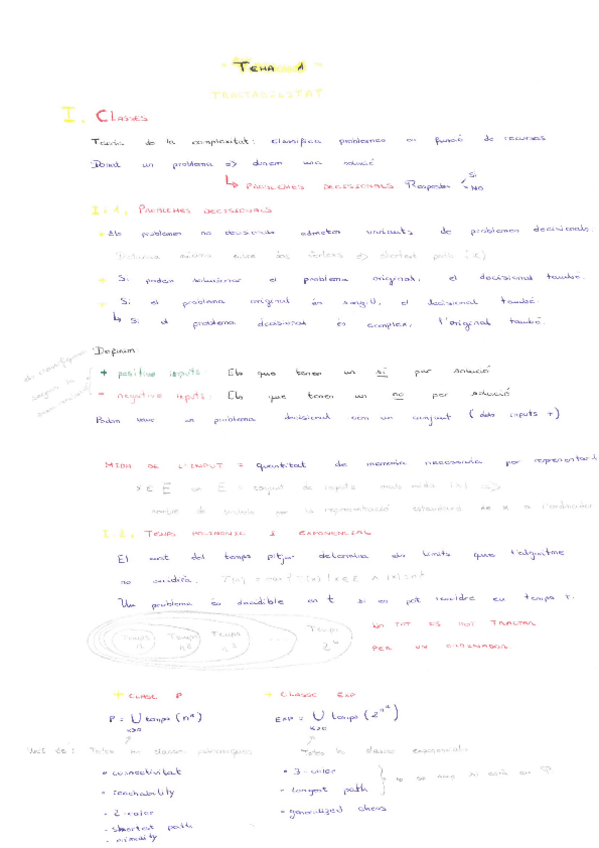 - TEMA 1 -
TRACTABILITAT
I. CLASSES
Teoria de la complexitat: classifica problemes en funció de recursos
Donat un problema => donem una solució
↳ PROBLEMES DECISIONALS Respostes Si
NO
I.1. PROBLEMES DECISIONALS
Els problemes no decisionals admeten variants de problemes decisionals.
Distancia mínima entre dos vèrtexs => shortest path
Si podem solucionar el problema original, el decisional també.
Si el problema original és senzill, el decisional també.
↳ Si el problema decisional és complex, l'original també.
Definim:
+ positive inputs: Els que tenen un si per solució
- negative inputs: Els que tenen un no per solució
Podem veure un problema decisional com un conjunt (dels inputs +)
MIDA DE L'INPUT = Quantitat de memoria necessaria per representar-l
x ∈ E on E = conjunt de inputs amb mida |x| =>
nombre de símbols per la representació estandard
I.2. TEMPS POLINOMIC I EXPONENCIAL
El cost del temps pitjor determina els límits que l'algoritme
no excedirà.
Un problema és decidible en t si es pot resoldre en temps t.
Temps n Temps n² Temps n³ ... Temps 2ⁿ
NO TOT ES POT TRACTAR
PER UN ORDINADOR
+ CLASE P + CLASSE EXP
P = ∪ temps (nᵏ) EXP = ∪ temps (2^nᵏ)
k>0 k>0
Totes les classes polinomiques Totes les classes exponencials
• connectivitat • 3-color
• reachability • longest path
• 2-color • generalized chess
• shortest path
• primality